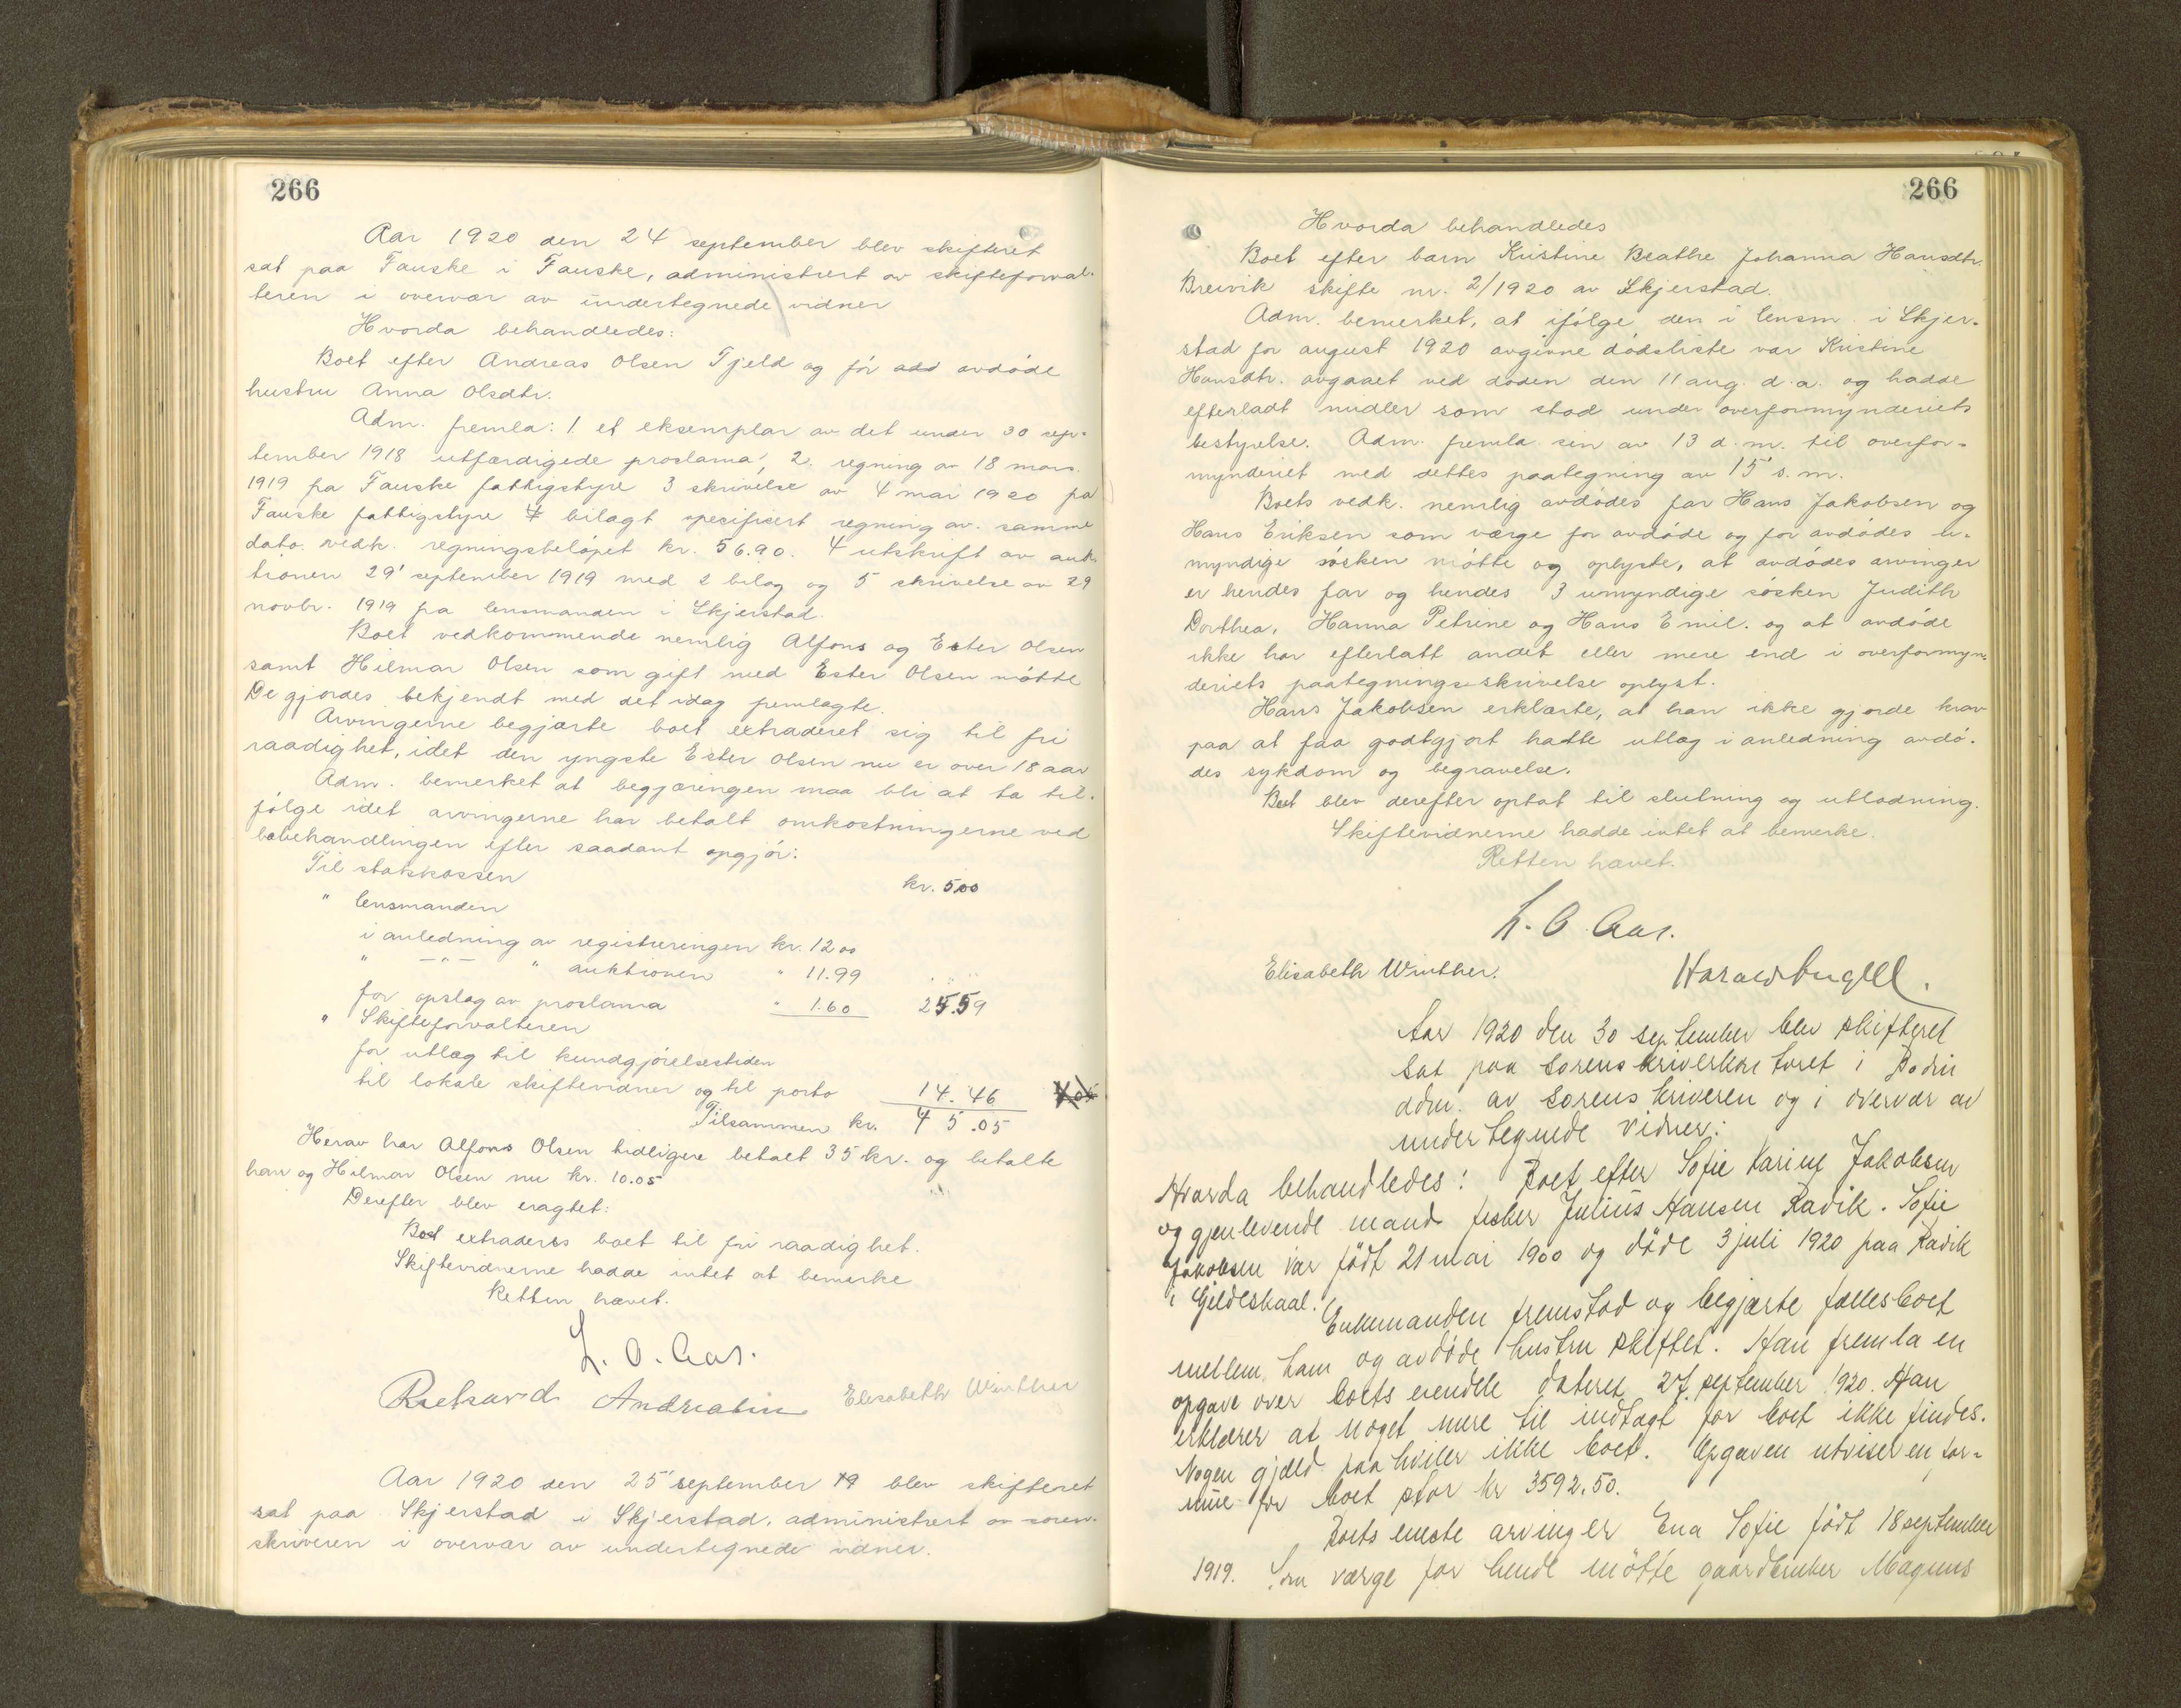 266
Aar 1920 den 24 september blev skifteret
sat paa Fauske i Fauske, administrert av skifteforval-
teren i overvær av undertegnede vidner
Hvorda behandledes:
Boet efter Andreas Olsen Tjeld og før add avdøde
hustru Anna Olsdtr.
Adm. fremla: 1 et eksemplar av det under 30 sep-
tember 1918 utfærdigede proclama, 2. regning av 18 mars
1919 fra Fauske fattigstyre 3 skrivelse av 4 mai 1920 fra
Fauske fattigstyre 4 bilagt specificert regning av samme
dato vedk. regningsbeløpet kr. 56.90. 4 utskrift av auk-
tionen 29' september 1919 med 2 bilag og 5 skrivelse av 29
novbr. 1919 fra lensmanden i Skjerstad.
Boet vedkommende nemlig Alfons og Ester Olsen
samt Hilmar Olsen som gift med Ester Olsen møtte
De gjordes bekjendt med det idag fremlagte.
Arvingerne begjærte boet extraderet sig til fri
raadighet, idet den yngste Ester Olsen nu er over 18 aar
Adm. bemerket at begjæringen maa bli at ta til-
følge idet arvingerne har betalt omkostningerne ved
bobehandlingen efter saadant opgjør:
Til statskassen kr. 5 00
" lensmanden
i anledning av registreringen kr. 12 00
" -"- " auktionen " 11.99
for opslag av proclama " 1.60 25.59
" Skifteforvalteren
for utlæg til kundgjørelsestiden
til lokale skiftevidner og til porto 14.46
Tilsammen kr. 45.05
Herav har Alfons Olsen tidligere betalt 35 kr. og betalte
han og Hilmar Olsen nu kr. 10.05
Derefter blev eragtet:
Boet extraderes boet til fri raadighet.
Skiftevidnerne hadde intet at bemerke
Retten hævet.
L. O. Aas.
Andreassen Elisabeth Winther
Aar 1920 den 25' september 19 blev skifteret
sat paa Skjerstad i Skjerstad, administrert av soren-
skriveren i overvær av undertegnede vidner.
266
Hvorda behandledes
Boet efter barn Kristine Beathe Johanna Hansdtr.
Breivik skifte nr. 2/1920 av Skjerstad.
Adm. bemerket, at ifølge den i lensm. i Skjer-
stad for august 1920 avgivne dødsliste var Kristine
Hansdtr. avgaaet ved døden den 11 aug. d.a. og hadde
efterladt midler som stod under overformynderiets
bestyrelse. Adm. fremla sin av 13 d.m. til overfor-
mynderiet med dettes paategning av 15' s.m.
Boets vedk. nemlig avdødes far Hans Jakobsen og
Hans Eriksen som værge for avdøde og for avdødes u-
myndige søsken møtte og oplyste, at avdødes arvinger
er hendes far og hendes 3 umyndige søsken Judith
Dorthea, Hanna Petrine og Hans Emil. og at avdøde
ikke har efterlatt andet eller mere end i overformyn-
deriets paategningsskrivelse oplyst.
Hans Jakobsen erklærte, at han ikke gjorde krav
paa at faa godtgjort hatte utlæg i anledning avdø-
des sykdom og begravelse.
Boet blev derefter optat til slutning og utlodning.
Skiftevidnerne hadde intet at bemerke.
Retten hævet.
L. O. Aas.
Elisabeth Winther. Harald
Aar 1920 den 30 september blev skifteret
sat paa sorenskriverkontoret i Bodin
adm. av sorenskriveren og i overvær av
undertegnede vidner:
Hvorda behandledes: Boet efter Sofie Karine Jakobsen
og gjenlevende mand fisker Julius Hansen Ravik. Sofie
Jakobsen var født 21 mai 1900 og døde 3 juli 1920 paa Ravik
i Gildeskaal.
Enkemanden fremstod og begjærte fællesboet
mellem ham og avdøde hustru skiftet. Han fremla en
opgave over boets eiendele dateret 27. september 1920. Han
erklærer at noget mere til indtægt for boet ikke findes.
Nogen gjæld paahviler ikke boet. Opgaven utviser en for-
mue for boet stor kr 3592.50.
Boets eneste arving er Ena Sofie født 18 september
1919. Som værge for hende møtte gaardbruker Magnus